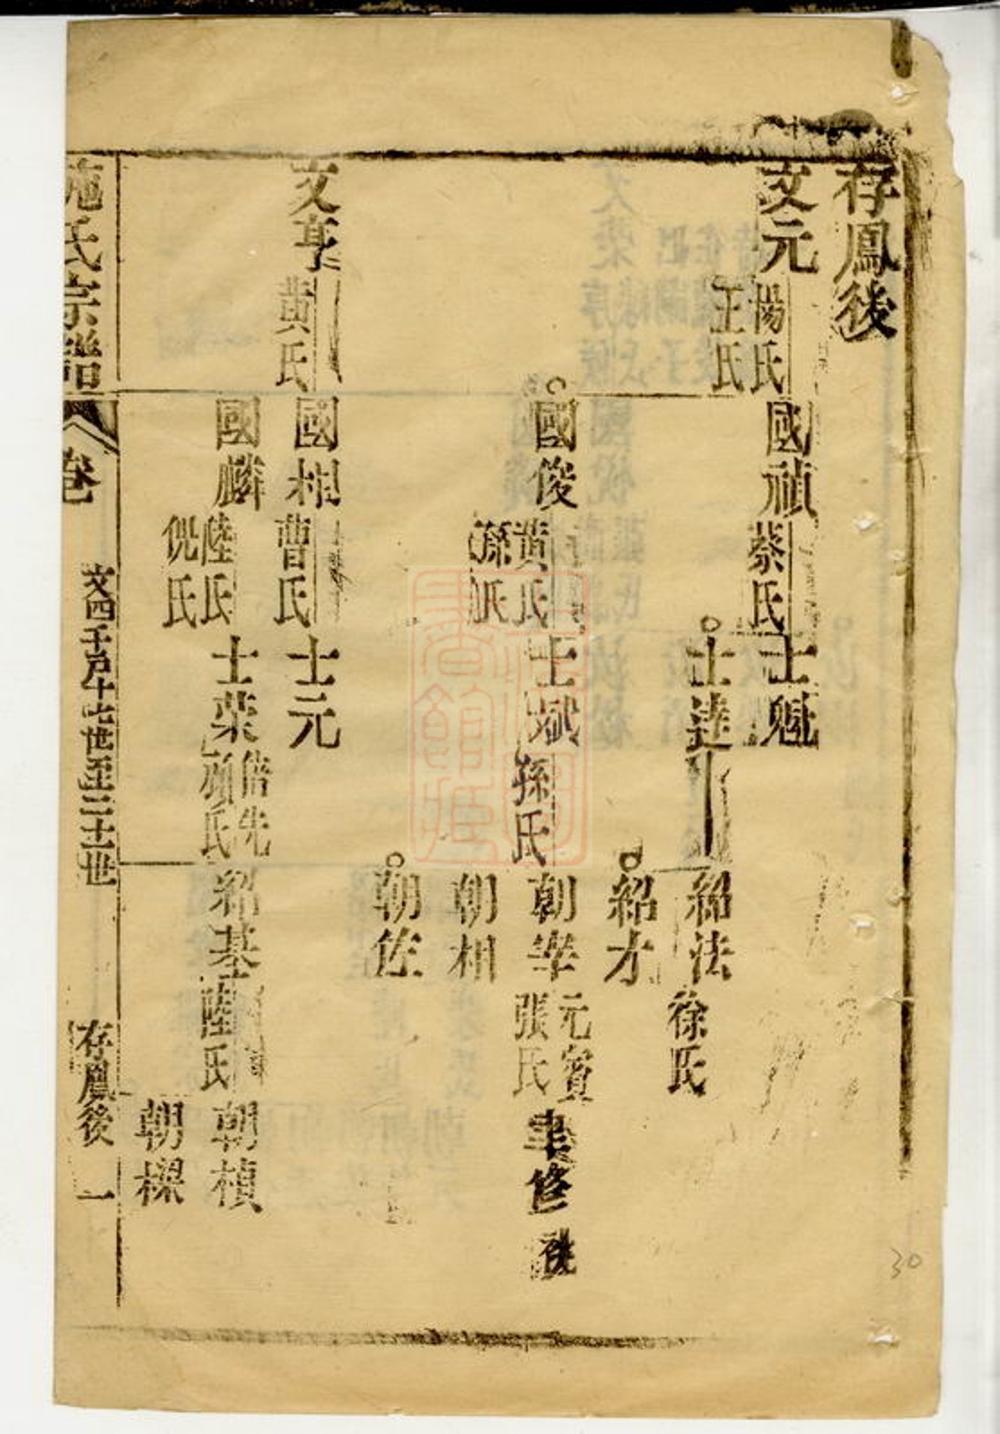 存鳳後
文元
楊氏
王氏
國禎
蔡氏
士魁
士達
紹法
徐氏
紹才
國俊
黃氏
孫氏
士斌
孫氏
朝宰
元賓
張氏
朝相
朝佐
文亨
黃氏
國相
曹氏
士元
國麟
陸氏
倪氏
士榮
倍先
顧氏
紹基
陸氏
朝楨
朝樑
施氏宗譜
卷
文四千戶十七世至二十一世
存鳳後
一
30